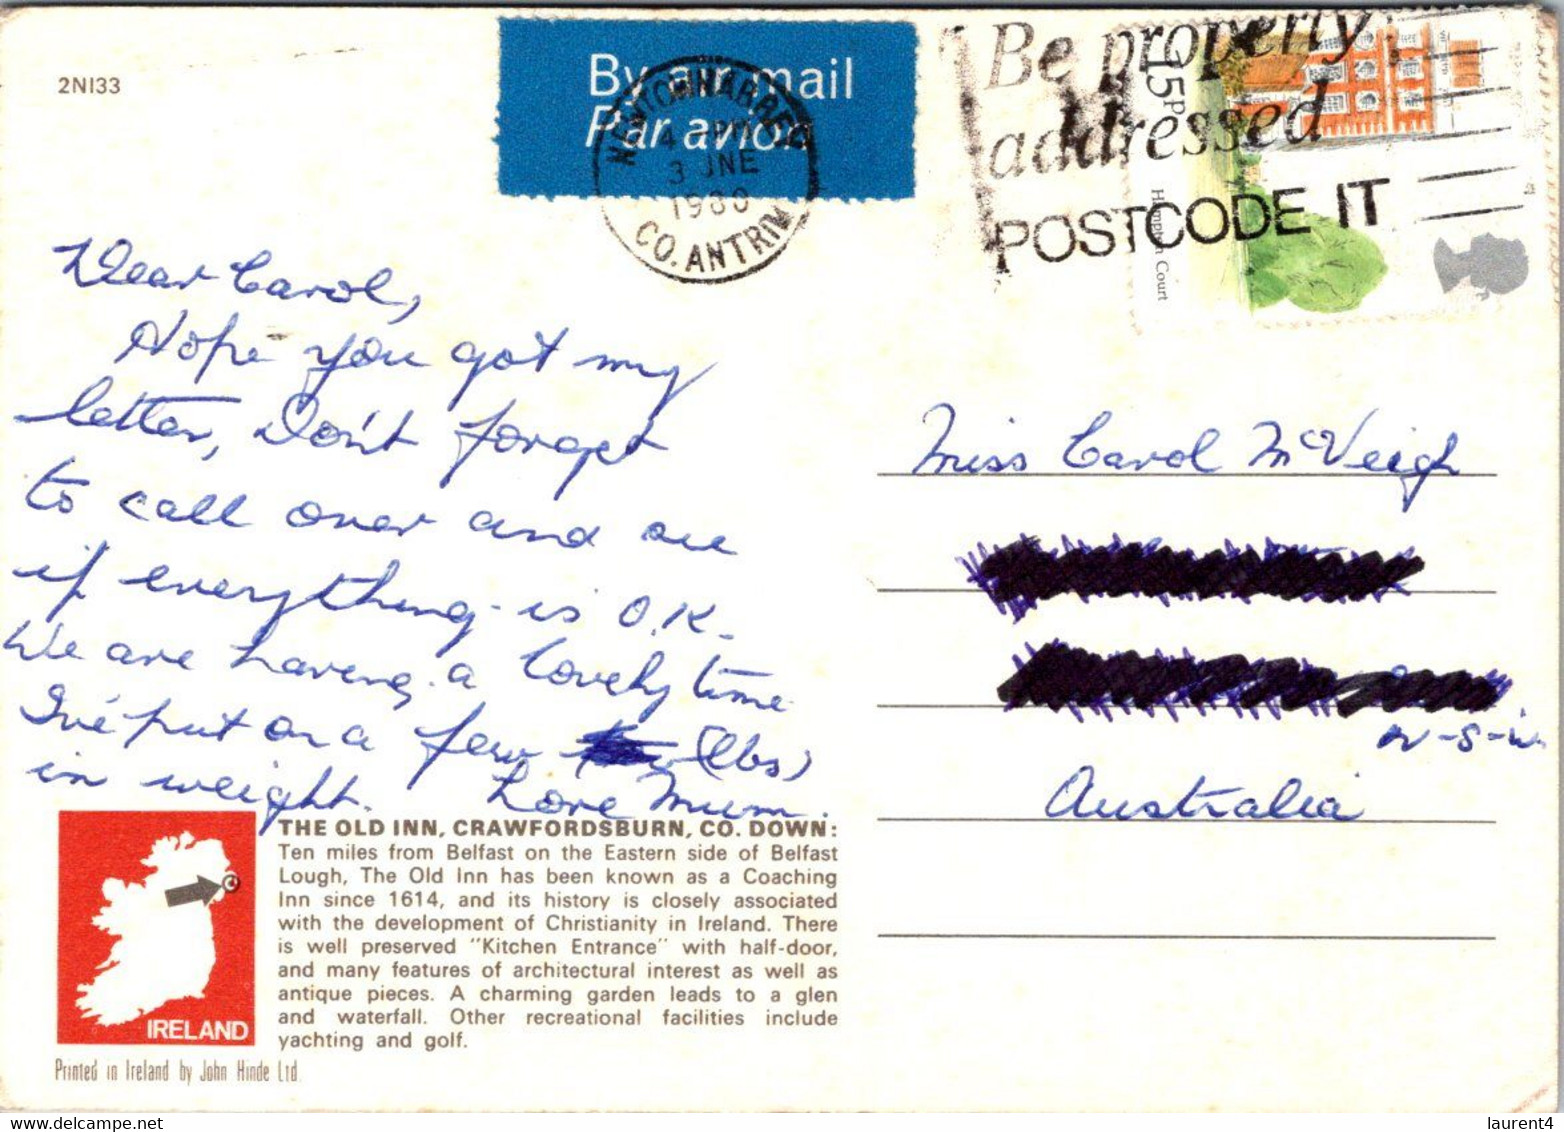 2NI33
By air mail
Par avion
NEWTOWNABBEY
4 PM
3 JNE
1980
CO. ANTRIM
Be properly
addressed
POSTCODE IT
15P
Hampton Court
Dear Carol,
Hope you got my
letter, Don't forget
to call over and see
if everything is O.K.
We are having a lovely time
I've put on a few (lbs)
in weight. Love Mum.
Miss Carol McVeigh
N-S-W.
Australia
THE OLD INN, CRAWFORDSBURN, CO. DOWN:
Ten miles from Belfast on the Eastern side of Belfast
Lough, The Old Inn has been known as a Coaching
Inn since 1614, and its history is closely associated
with the development of Christianity in Ireland. There
is well preserved "Kitchen Entrance" with half-door,
and many features of architectural interest as well as
antique pieces. A charming garden leads to a glen
and waterfall. Other recreational facilities include
yachting and golf.
IRELAND
Printed in Ireland by John Hinde Ltd.
https://www.delcampe.net
laurent4